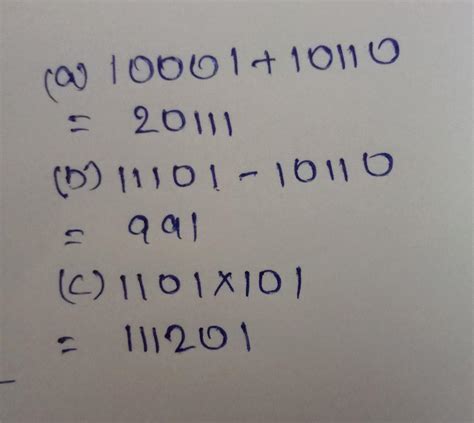 (a) 10001+10110
= 20111
(b) 11101-10110
= 991
(c) 1101×101
= 111201